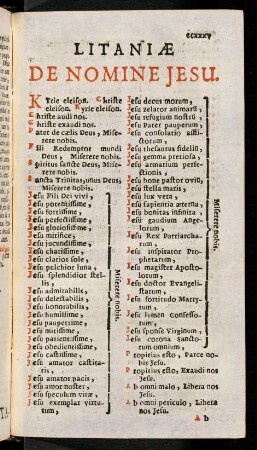 ccxxxv
LITANIÆ
DE NOMINE JESU.
Kyrie eleison. Christe
eleison. Kyrie eleison.
Christe audi nos.
Christe exaudi nos.
Pater de cælis Deus, Mise-
rere nobis.
Fili Redemptor mundi
Deus, Miserere nobis.
Spiritus sancte Deus, Mise-
rere nobis.
Sancta Trinitas, unus Deus,
Miserere nobis.
Jesu Fili Dei vivi,
Jesu potentissime,
Jesu fortissime,
Jesu perfectissime,
Jesu gloriosissime,
Jesu mirifice,
Jesu jucundissime,
Jesu charissime,
Jesu clarior sole,
Jesu pulchior luna,
Jesu splendidior stel-
lis,
Jesu admirabilis,
Jesu delectabilis,
Jesu honorabilis,
Jesu humillime,
Jesu pauperrime,
Jesu mitissime,
Jesu patientissime,
Jesu obedientissime,
Jesu castissime,
Jesu amator castita-
tis,
Jesu amator pacis,
Jesu amor noster,
Jesu speculum vitæ,
Jesu exemplar virtu-
tum,
Miserere nobis.
Jesu decus morum,
Jesu zelator animarum,
Jesu refugium nostrum,
Jesu Pater pauperum,
Jesu consolatio affli-
ctorum,
Jesu thesaurus fidelium,
Jesu gemma pretiosa,
Jesu armarium perfe-
ctionis,
Jesu bone pastor ovium,
Jesu stella maris,
Jesu lux vera,
Jesu sapientia æterna,
Jesu bonitas infinita,
Jesu gaudium Ange-
lorum,
Jesu Rex Patriarcha-
rum,
Jesu inspirator Pro-
phetarum,
Jesu magister Aposto-
lorum,
Jesu doctor Evangeli-
starum,
Jesu fortitudo Marty-
rum,
Jesu lumen Confesso-
rum,
Jesu sponse Virginum,
Jesu corona Sancto-
rum omnium,
Miserere nobis.
Propitius esto, Parce no-
bis Jesu.
Propitius esto, Exaudi nos
Jesu.
Ab omni malo, Libera nos
Jesu.
Ab omni periculo, Libera
nos Jesu.
Ab